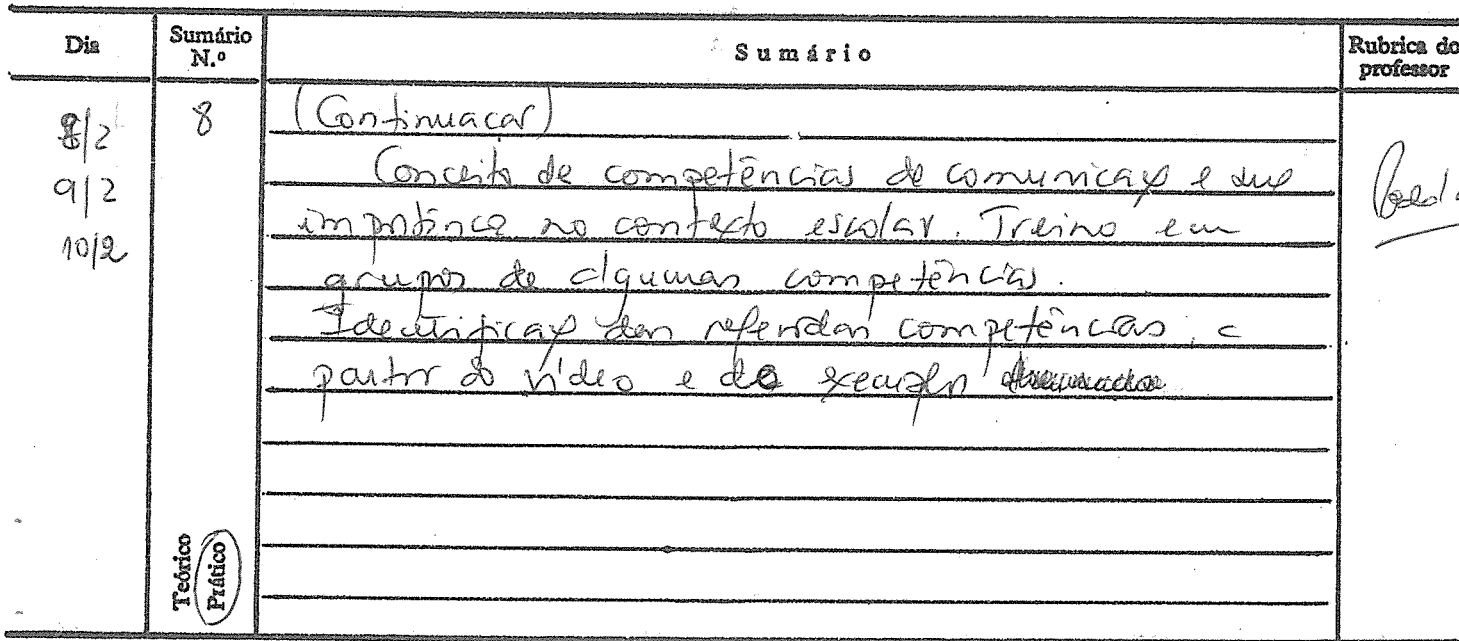 Dia
Sumário N.º
Sumário
Rubrica do professor
8/2
9/2
10/2
8
(Continuação)
Conceito de competências de comunicação e sua
importância no contexto escolar. Treino em
grupos de algumas competências.
Identificação das referidas competências, a
partir do vídeo e de
Teórico
Prático